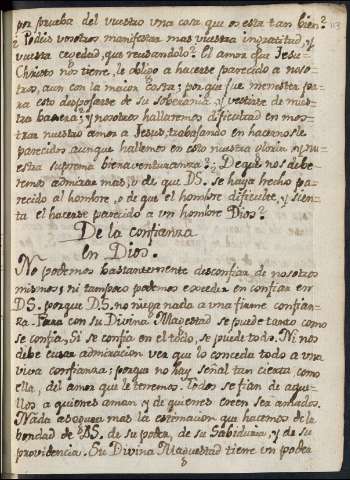 por prueba del vuestro una cosa que os esta tan bien?
? Podeis vosotros manifestar mas vuestra ingratitud, y
vuestra ceguedad, que reusandolo? El amor que Jesu-
Christo nos tiene, le obligo a hacerse parecido a noso-
tros, aun con la maior costa; porque fue menester pa-
ra esto despojarse de su soberania, y vestirse de nues-
tra; y nosotros hallaremos dificultad en mos-
trar nuestro amor a Jesus, trabajando en hacernosle
parecidos, aunque hallemos en esto nuestra gloria, y nu-
estra suprema bienaventuranza? De que nos debe-
remos admirar mas, o de que DS. se haya hecho pa-
recido al hombre, o de que el hombre dificulte, y sien-
ta el hacerse parecido a un hombre Dios?
De la confianza
en Dios.
No podemos bastantemente desconfiar de nosotros
mismos; ni tampoco podemos exceder en confiar en
DS. porque DS. no niega nada a una firme confian-
za. Para con su Divina Magestad se puede tanto como
se confia, Si se confia en el todo, se puede todo. Ni nos
debe causar admiracion ver que lo conceda todo a una
viva confianza; porque no hay señal tan cierta como
ella, del amor que le tenemos. Todos se fian de aque-
llos a quienes aman, y de quienes creen ser amados.
Nada asegura mas la estimacion que hacemos de la
bondad de DS. de su poder, de su Sabiduria, y de su
providencia. Su Divina Magestad tiene un poder